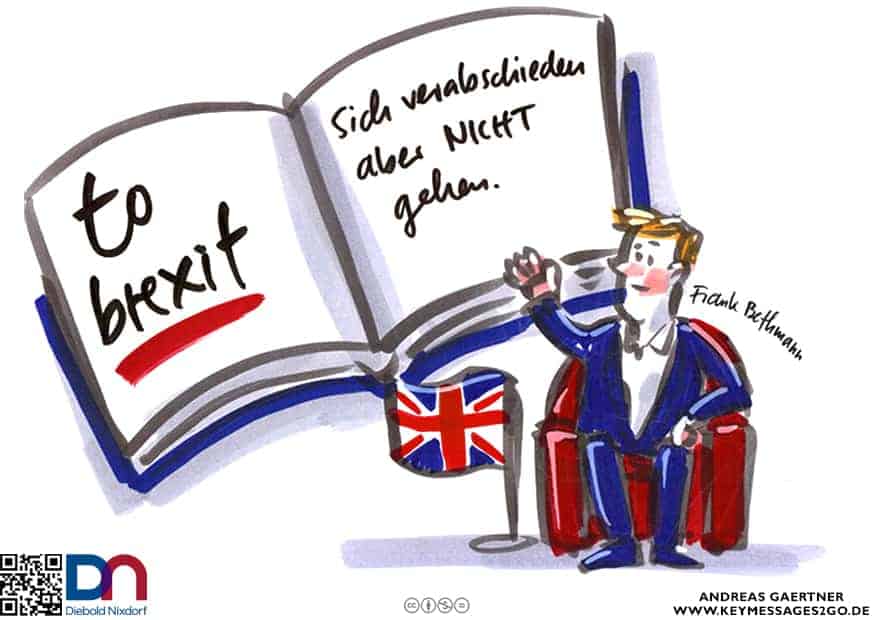 to
brexit
Sich verabschieden
aber NICHT
gehen.
Frank Bethmann
DN
Diebold Nixdorf
ANDREAS GAERTNER
WWW.KEYMESSAGES2GO.DE